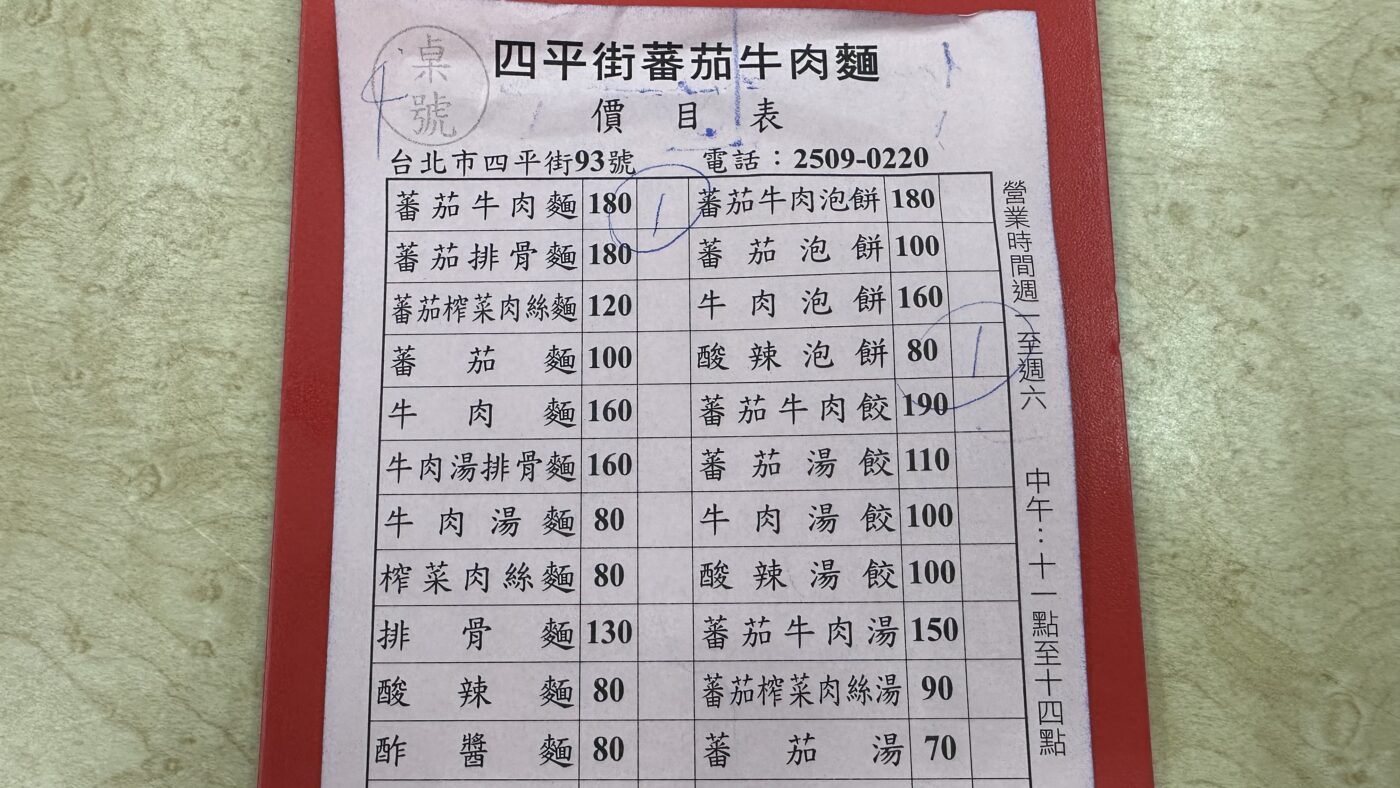 桌號
4
四平街蕃茄牛肉麵
價目表
台北市四平街93號 電話：2509-0220
蕃茄牛肉麵 180 1 蕃茄牛肉泡餅 180
蕃茄排骨麵 180 蕃茄泡餅 100
蕃茄榨菜肉絲麵 120 牛肉泡餅 160
蕃茄麵 100 酸辣泡餅 80 1
牛肉麵 160 蕃茄牛肉餃 190
牛肉湯排骨麵 160 蕃茄湯餃 110
牛肉湯麵 80 牛肉湯餃 100
榨菜肉絲麵 80 酸辣湯餃 100
排骨麵 130 蕃茄牛肉湯 150
酸辣麵 80 蕃茄榨菜肉絲湯 90
酢醬麵 80 蕃茄湯 70
營業時間週一至週六 中午：十一點至十四點